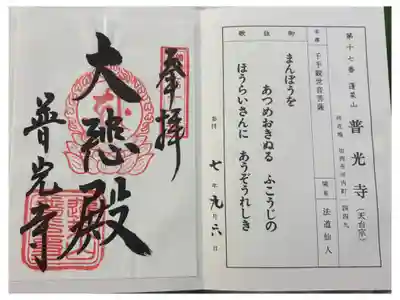 奉拝
大悲殿
普光寺
第十七番 蓬莱山
普光寺 (天台宗)
所在地 加西市河内町一四四九
本尊 千手観世音菩薩
開基 法道仙人
御詠歌
まんぽうを
あつめおきぬる ふこうじの
ほうらいさんに あうぞうれしき
参拝 七年九月六日